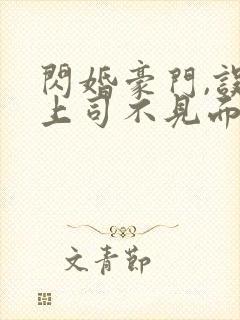 閃婚豪門,誤
上司不見而
文青節